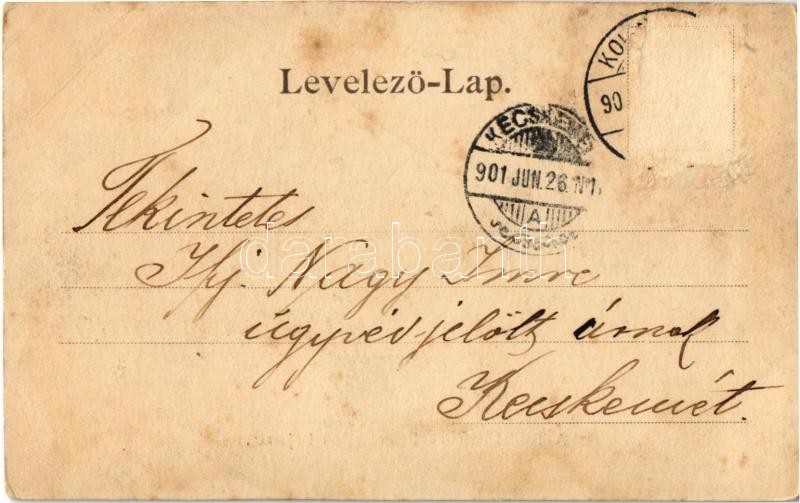 Levelező-Lap.
KOL
90
KECSKEMÉ
901 JUN. 26. N 1
A
Tekintetes
Ifj. Nagy Imre
ügyvéd-jelölt úrnak
Kecskemét.
darabanth